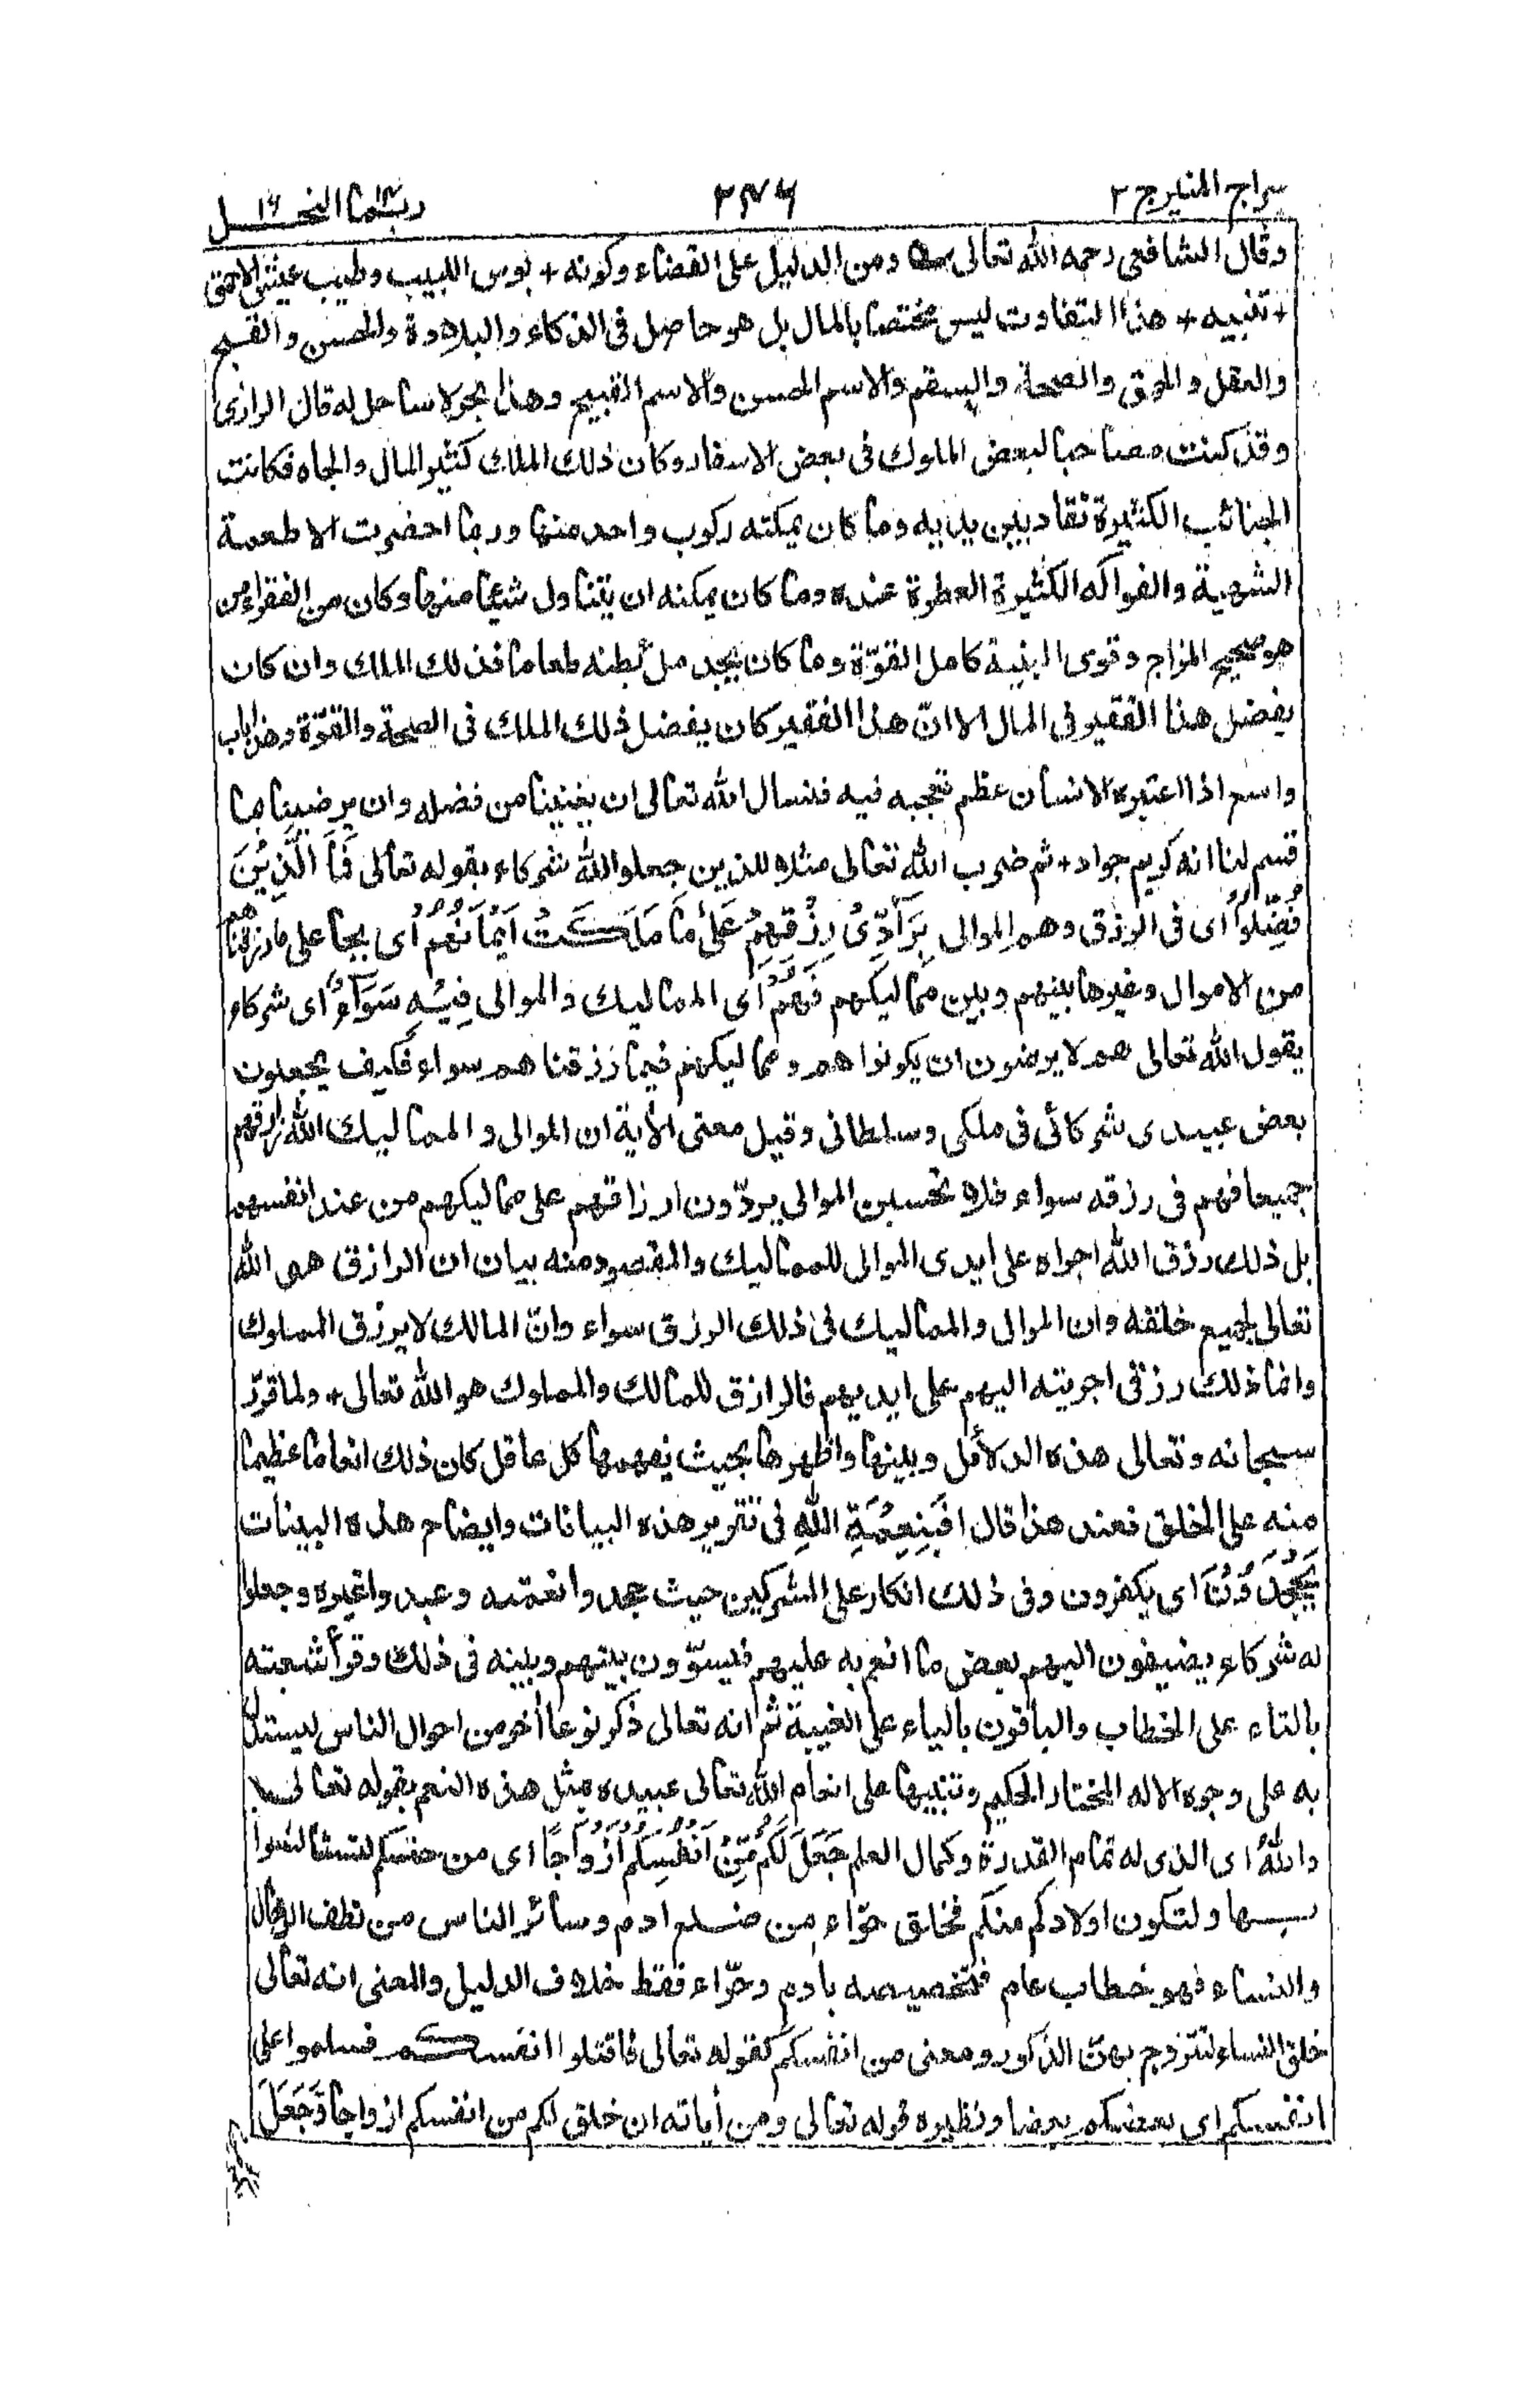 سراج المنير ج ٢ ٢٤٦ ربما ١٤ النحل ١٦
وقال الشافعى رحمه الله تعالى ومن الدليل على القضاء وكونه + بوس اللبيب وطيب عيش الاحمق
+ تنبيه + هذا التفاوت ليس مختصا بالمال بل هو حاصل فى الذكاء والبلادة والحسن والقبح
والعقل والحمق والصحة والسقم والاسم الحسن والاسم القبيح وهذا بحر لا ساحل له قال الرازى
وقد كنت مصاحبا لبعض الملوك فى بعض الاسفار وكان ذلك الملك كثير المال والجاه فكانت
الجنائب الكثيرة تقاد بين يديه وما كان يمكنه ركوب واحد منها وربما احضرت الاطعمة
الشهية والفواكه الكثيرة العطرة عنده وما كان يمكنه ان يتناول شيئا منها وكان من الفقراء من
هو صحيح المزاج وقوى البنية كامل القوّة وما كان يجد ملء بطنه طعاما فذلك الملك وان كان
يفضل هذا الفقير فى المال الا انّ هذا الفقير كان يفضل ذلك الملك فى الصحة والقوّة وهذا باب
واسع اذا اعتبره الانسان عظم تعجبه فيه فنسال الله تعالى ان يغنينا من فضله وان يرضينا بما
قسم لنا انه كريم جواد + ثم ضرب الله تعالى مثلا للذين جعلوا لله شركاء بقوله تعالى فَمَا الَّذِيْنَ
فُضِّلُوْا اى فى الرزق وهم الموالى بِرَآدِّىْ رِزْقِهِمْ عَلٰى مَا مَلَكَتْ اَيْمَانُهُمْ اى بجاعلى ما رزقناهم
من الاموال وغيرها بينهم وبين مماليكهم فَهُمْ اى المماليك والموالى فِيْهِ سَوَآءٌ اى شركاء
يقول الله تعالى هم لا يرضون ان يكونوا هم ومماليكهم فيما رزقناهم سواء فكيف يجعلون
بعض عبيدى شركائى فى ملكى وسلطانى وقيل معنى الاٰية ان الموالى والمماليك الله رازقهم
جميعا فهم فى رزقه سواء فلا تحسبن الموالى يردّون ارزاقهم على مماليكهم من عند انفسهم
بل ذلك رزق الله اجراه على ايدى الموالى للمماليك والمقصود منه بيان ان الرازق هو الله
تعالى لجميع خلقه وان الموالى والمماليك فى ذلك الرزق سواء وانّ المالك لا يرزق المملوك
وانما ذلك رزقى اجريته اليهم على ايديهم فالرازق للمالك والمملوك هو الله تعالى + ولما قرّر
سبحانه وتعالى هذه الدلائل وبينها واظهرها بحيث يفهمها كل عاقل كان ذلك انعاما عظيما
منه على الخلق فعند هذا قال اَفَبِنِعْمَةِ اللهِ فى تقرير هذه البيانات وايضاح هذه البينات
يَجْحَدُوْنَ اى يكفرون وفى ذلك انكار على المشركين حيث جحدوا نعمته وعبدوا غيره وجعلوا
له شركاء يضيفون اليهم بعض ما انعم به عليهم فيسوّون بينهم وبينه فى ذلك وقرأ شعبة
بالتاء على الخطاب والباقون بالياء على الغيبة ثم انه تعالى ذكر نوعا اٰخر من احوال الناس ليستدل
به على وجود الاله المختار الحكيم وتنبيها على انعام الله تعالى عبيده بمثل هذه النعم بقوله تعالى
وَاللهُ اى الذى له تمام القدرة وكمال العلم جَعَلَ لَكُمْ مِّنْ اَنْفُسِكُمْ اَزْوَاجًا اى من جنسكم لتستانسوا
بها ولتكون اولادكم منكم فخلق حوّاء من ضلع ادم وسائر الناس من نطف الرجال
والنساء فهو خطاب عام فتخصيصه بادم وحوّاء فقط خلاف الدليل والمعنى انه تعالى
خلق النساء لتتزوج بهنّ الذكور ومعنى من انفسكم كقوله تعالى فاقتلوا انفسكم فسلموا على
انفسكم اى بعضكم بعضا ونظيره قوله تعالى ومن اٰياته ان خلق لكم من انفسكم ازواجا وَّجَعَلَ